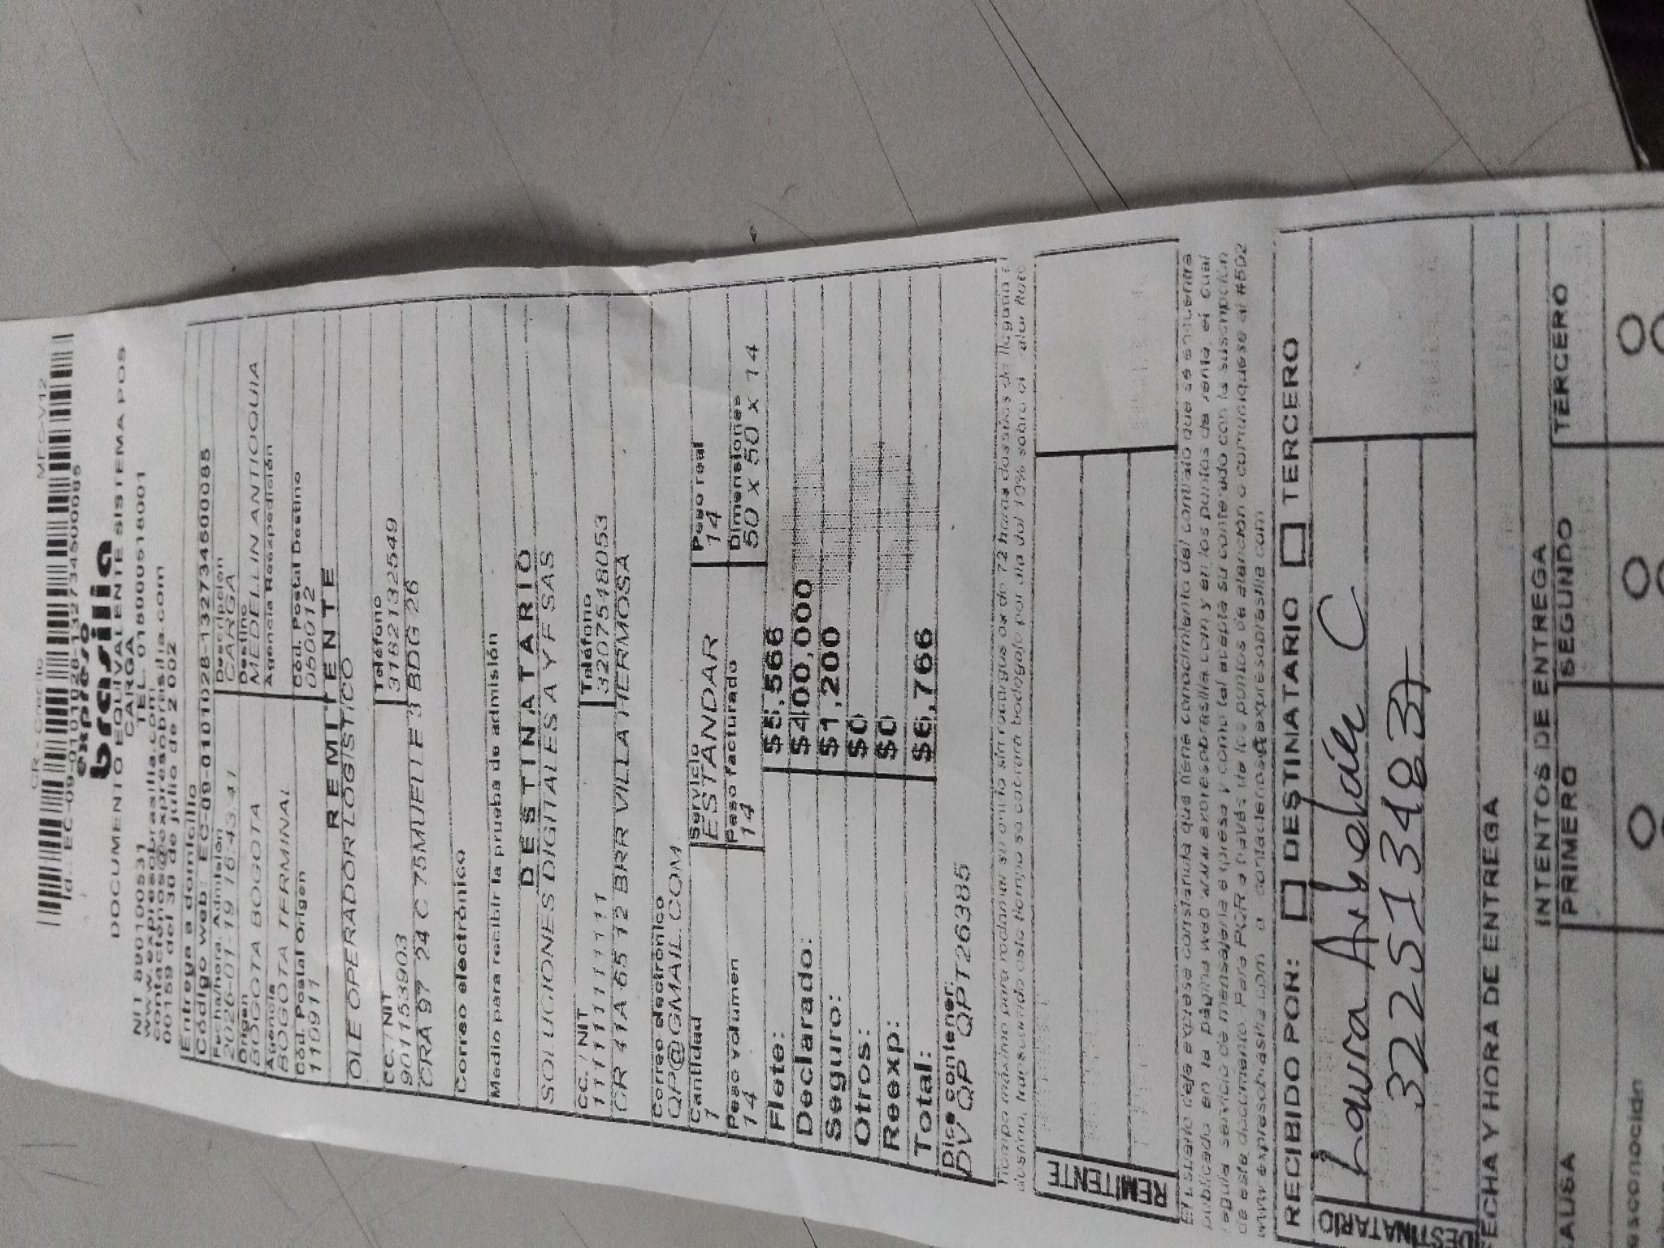 CR - Credito MEC-V12
Id.: EC-09-0101028-1327345000085
expreso
brasilia
DOCUMENTO EQUIVALENTE SISTEMA POS
CARGA
NIT 890100531 TEL. 018000518001
www.expresobrasilia.com
contactenos@expresobrasilia.com
00159 del 30 de julio de 2002
Entrega a domicilio
Código web: EC-09-0101028-1327345000085
Fecha/hora. Admisión Descripción
2026-01-19 16:43:41 CARGA
Origen Destino
BOGOTA BOGOTA MEDELLIN ANTIOQUIA
Agencia Agencia Reexpedición
BOGOTA TERMINAL
Cód. Postal Origen Cód. Postal Destino
110911 050012
REMITENTE
OLE OPERADOR LOGISTICO
CC. / NIT Teléfono
901153903 3182132549
CRA 97 24 C 75MUELLE 3 BDG 26
Correo electrónico
Medio para recibir la prueba de admisión
DESTINATARIO
SOLUCIONES DIGITALES A Y F SAS
CC. / NIT Teléfono
1111111111111 3207548053
CR 41A 65 12 BRR VILLA HERMOSA
Correo electrónico
QP@GMAIL.COM
Cantidad Servicio Peso real
1 ESTANDAR 14
Peso volumen Peso facturado Dimensiones
14 14 50 x 50 x 14
Flete: $5,566
Declarado: $400,000
Seguro: $1,200
Otros: $0
Reexp: $0
Total: $6,766
Dice contener:
DV QP QPT26385
Tiempo máximo para reclamar su envío sin recargos es de 72 horas después de llegada
destino, transcurrido este tiempo se cobrará bodegaje por día del 10% sobre el valor flete
REMITENTE
El usuario deja expresa constancia que tiene conocimiento del contrato que se encuentra
publicado en la página web www.expresobrasilia.com y en los puntos de venta, el cual
regula servicio de mensajería expresa y como tal acepta su contenido con la suscripción
de este documento. Para PQR a través de los puntos de atención o comuníquese al #502
www.expresobrasilia.com o contactenos@expresobrasilia.com
RECIBIDO POR: DESTINATARIO TERCERO
DESTINATARIO
Laura Arbeláez C
322513483
FECHA Y HORA DE ENTREGA
INTENTOS DE ENTREGA
CAUSA PRIMERO SEGUNDO TERCERO